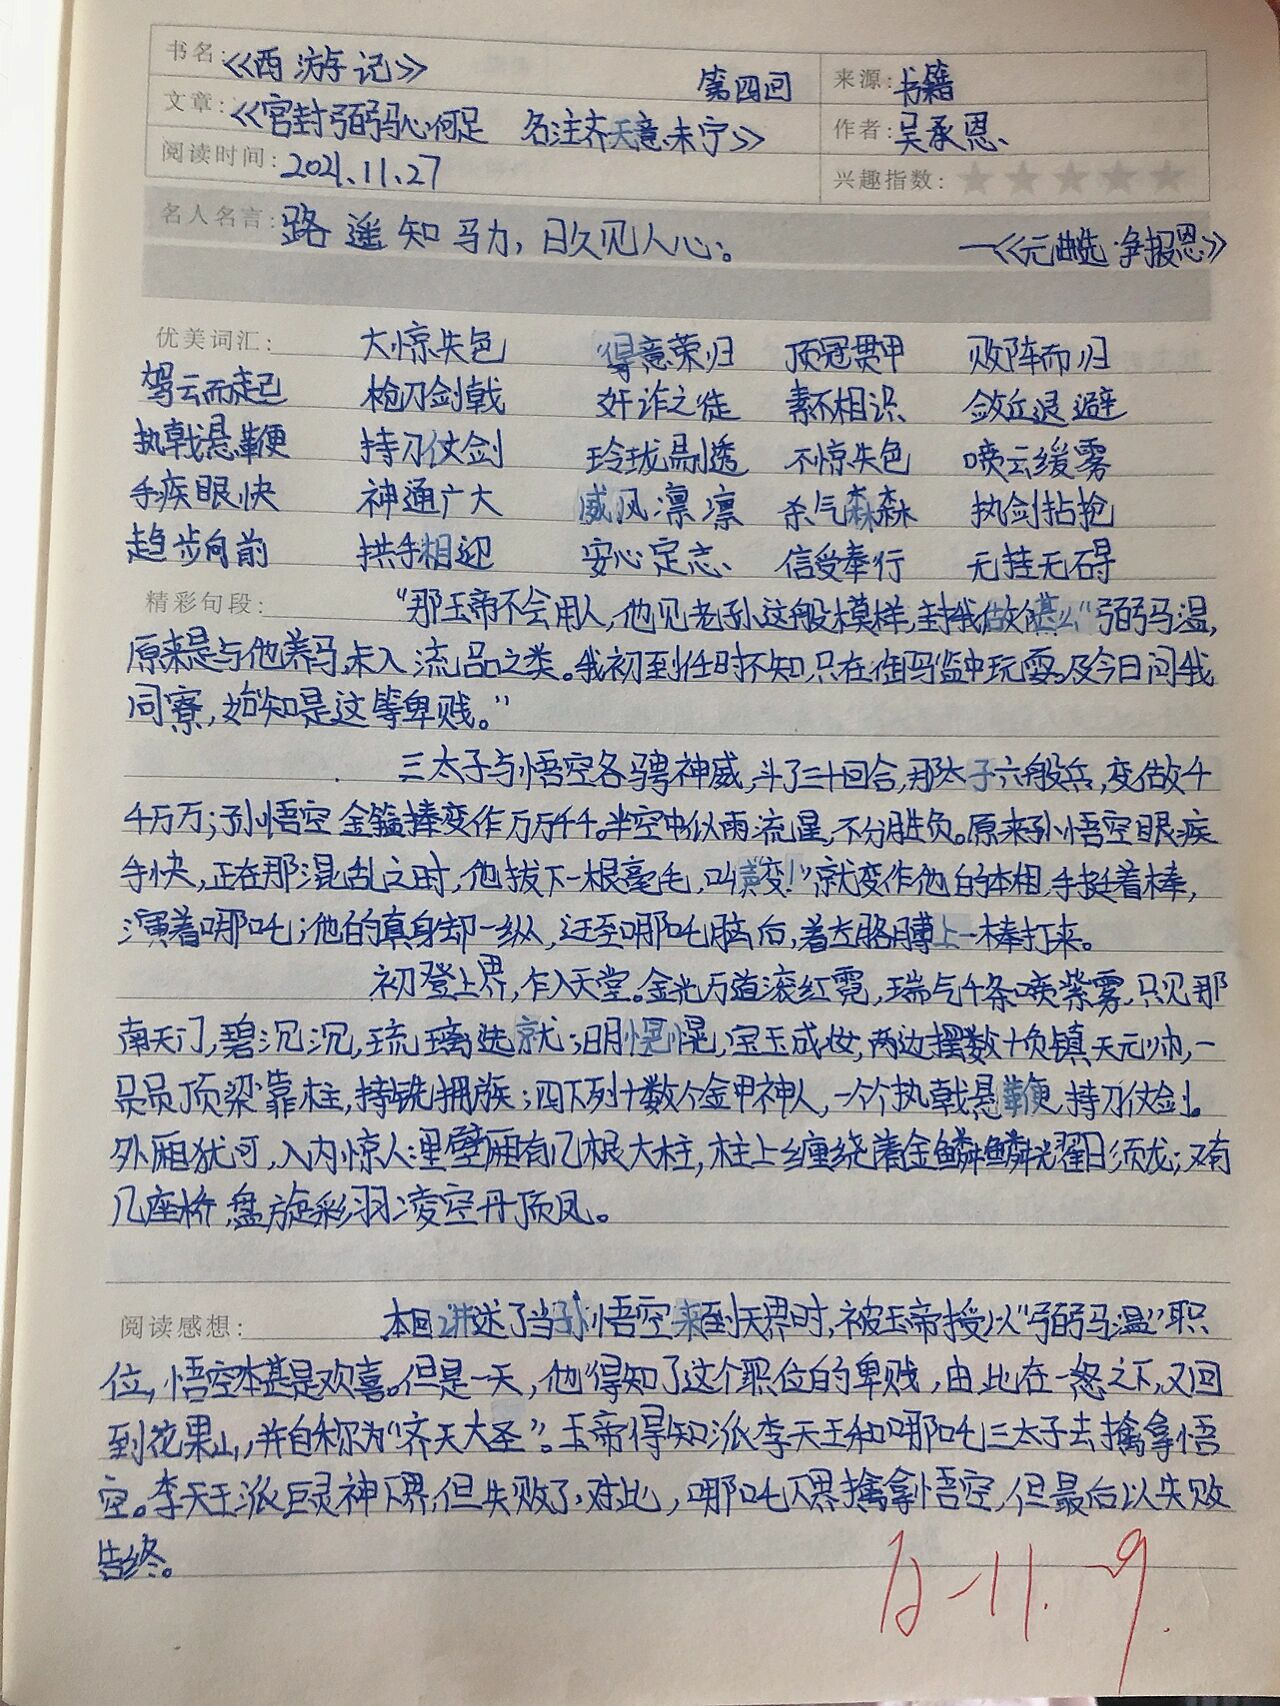 书名:《西游记》 第四回 来源:书籍
文章:《官封弼马心何足 名注齐天意未宁》 作者:吴承恩
阅读时间:2021.11.27 兴趣指数:
名人名言:路遥知马力,日久见人心。 —《元曲选·争报恩》
优美词汇: 大惊失色 得意荣归 顶冠贯甲 败阵而归
驾云而起 枪刀剑戟 奸诈之徒 素不相识 敛兵退避
执戟悬鞭 持刀仗剑 玲珑剔透 不惊失色 喷云缓雾
手疾眼快 神通广大 威风凛凛 杀气森森 执剑拈枪
趋步向前 拱手相迎 安心定志 信受奉行 无挂无碍
精彩句段: “那玉帝不会用人,他见老孙这般模样,封我做甚么“弼马温,
原来是与他养马,未入流品之类。我初到任时不知,只在御马监中玩耍。及今日问我
同寮,始知是这等卑贱。”
三太子与悟空各骋神威,斗了三十回合,那太子六般兵,变做千
千万万;孙悟空金箍棒变作万万千千。半空中似雨流星,不分胜负。原来孙悟空眼疾
手快,正在那混乱之时,他拔下一根毫毛,叫“变!”就变作他的本相,手挺着棒,
演着哪吒;他的真身却一纵,迂至哪吒脑后,着左胳膊上一棒打来。
初登上界,乍入天堂。金光万道滚红霓,瑞气千条喷紫雾。只见那
南天门,碧沉沉,琉璃造就;明幌幌,宝玉成妆,两边摆数十负镇天元帅,一
员员顶梁靠柱,持铣拥旄;四下列十数个金甲神人,一个个执戟悬鞭,持刀仗剑。
外厢犹可,入内惊人:里壁厢有几根大柱,柱上缠绕着金鳞鳞耀日须龙;又有
几座桥,盘旋彩羽凌空丹顶凤。
阅读感想: 本回讲述了当孙悟空来到天界时,被玉帝授以“弼马温”职
位,悟空本甚是欢喜。但是一天,他得知了这个职位的卑贱,由此在一怒之下,又回
到花果山,并自称为“齐天大圣”。玉帝得知派李天王和哪吒三太子去擒拿悟
空。李天王派巨灵神下界,但失败了,对此,哪吒下界擒拿悟空,但最后以失败
告终。